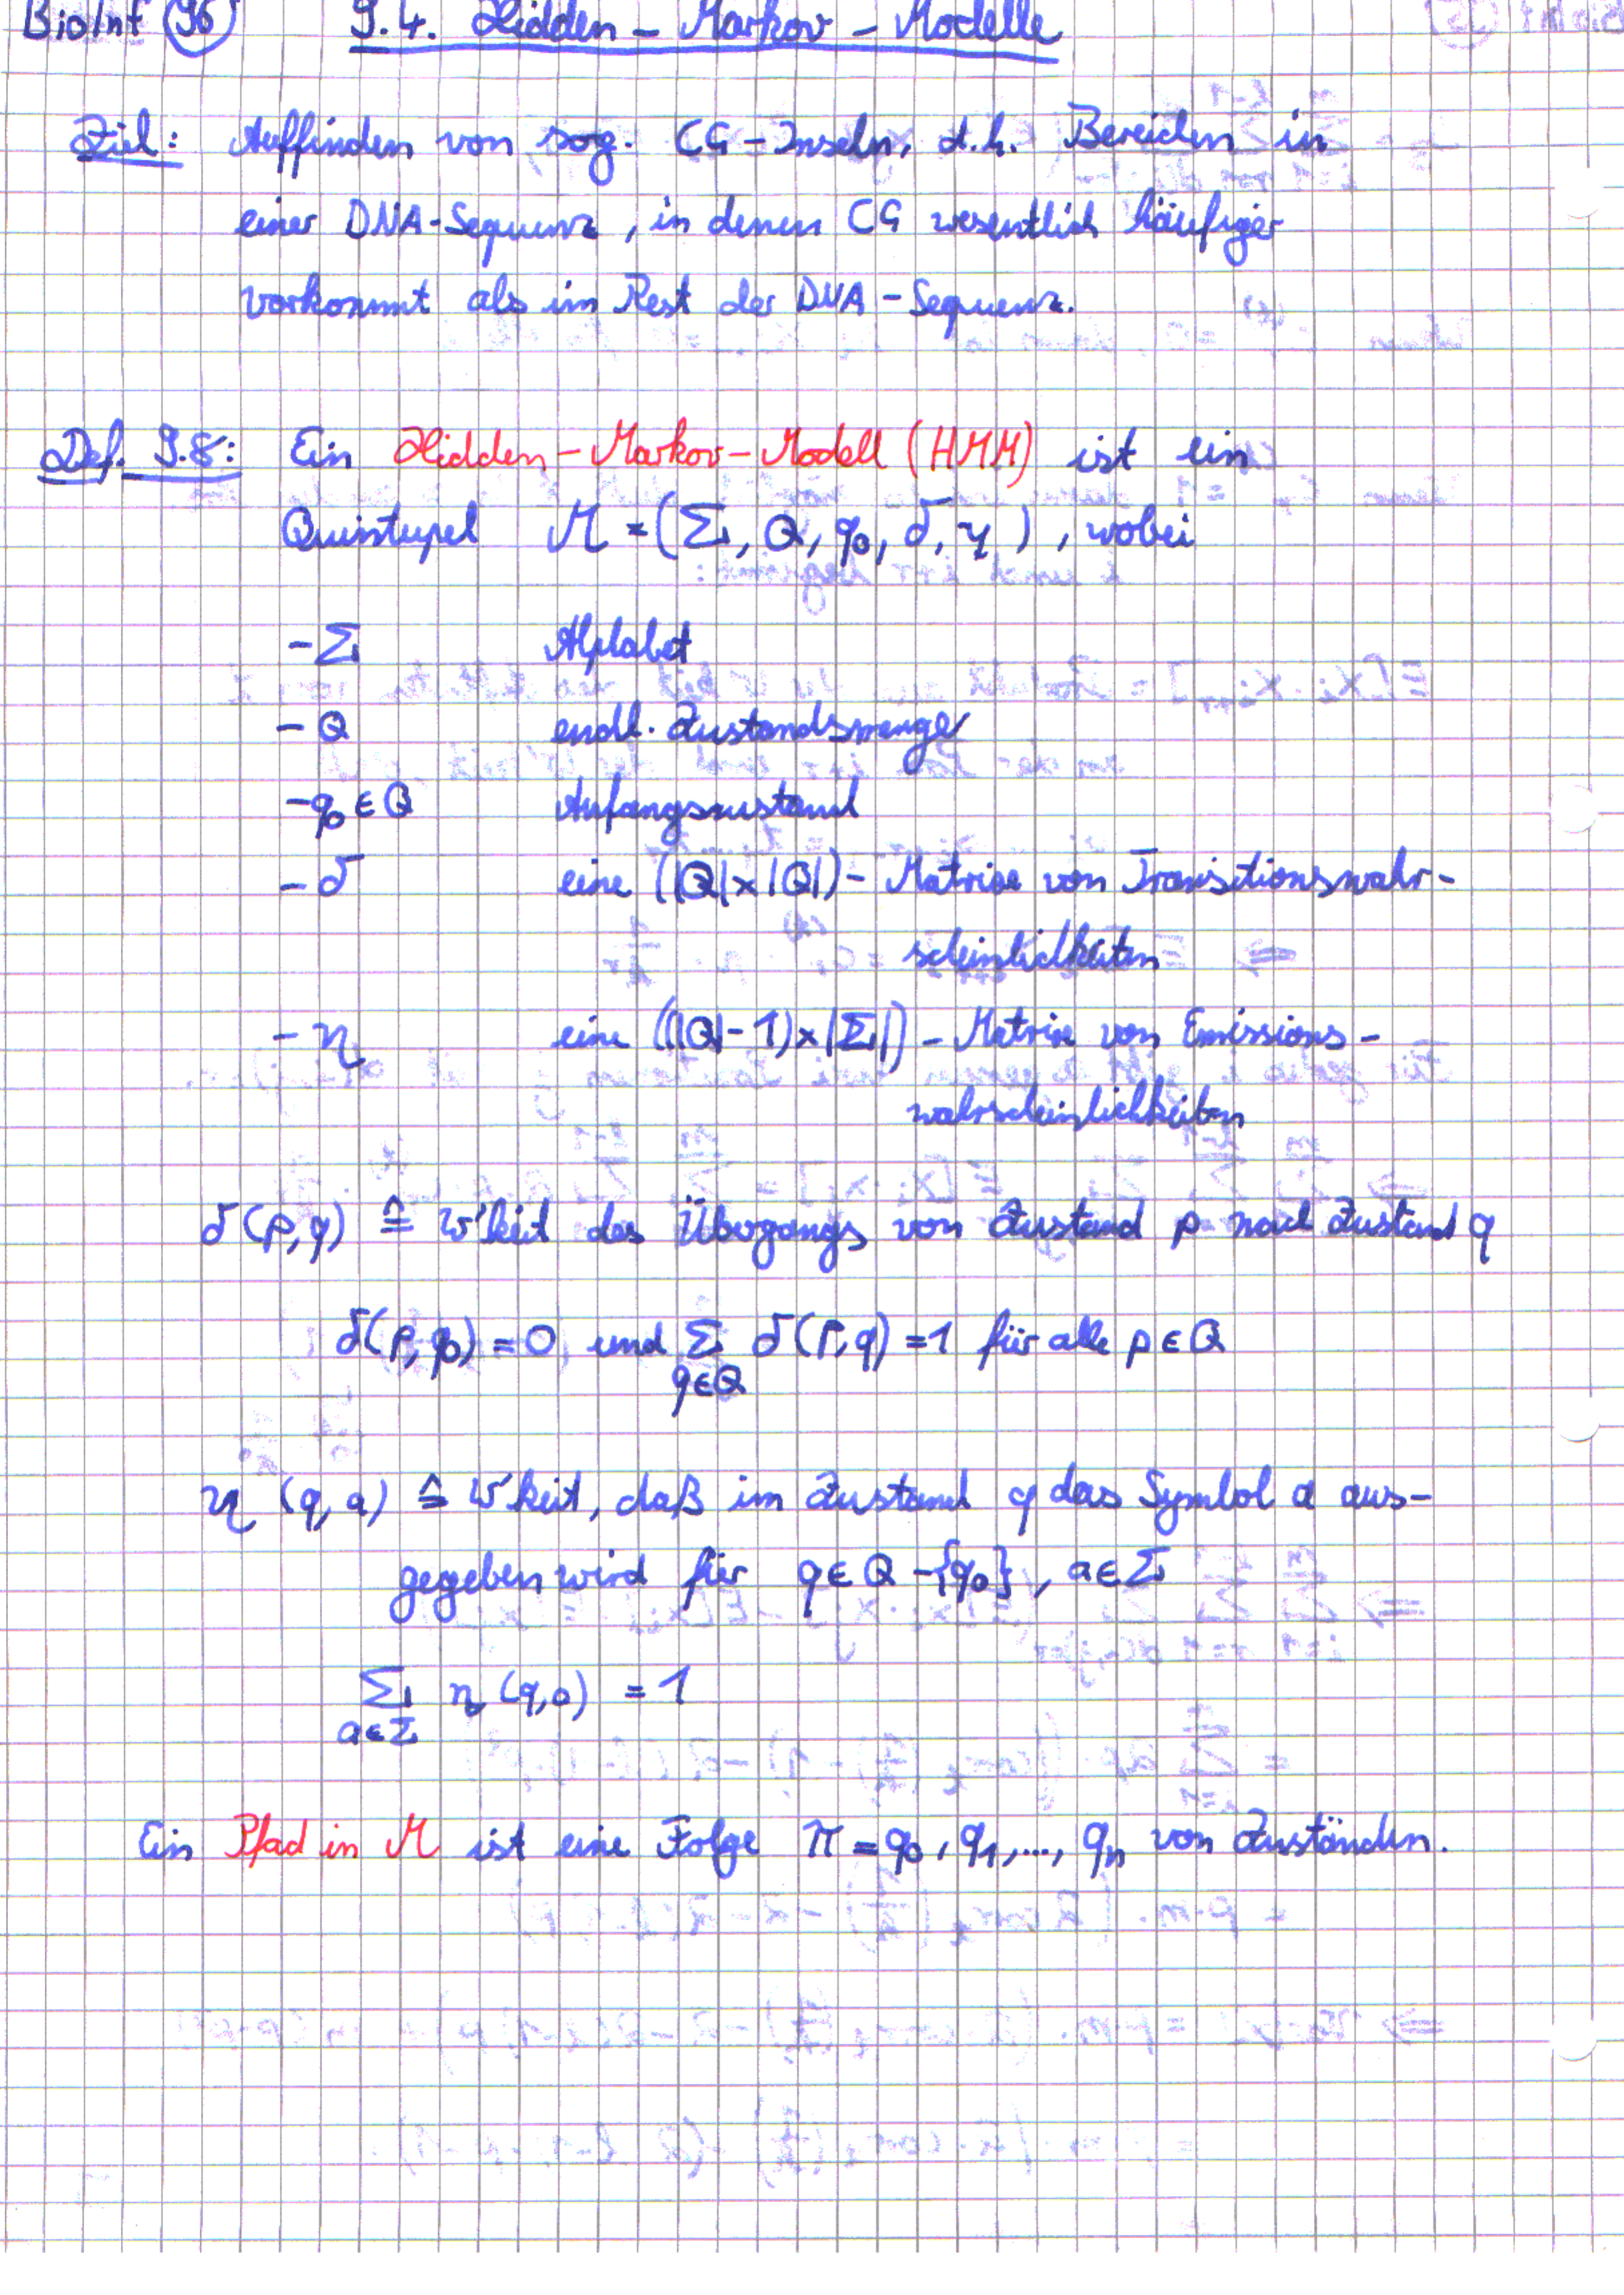 BioInf 96 9.4. Hidden-Markov-Modelle
Ziel: Auffinden von sog. CG-Inseln, d.h. Bereichen in
einer DNA-Sequenz, in denen CG wesentlich häufiger
vorkommt als im Rest der DNA-Sequenz.
Def. 9.8: Ein Hidden-Markov-Modell (HMM) ist ein
Quintupel M = (Σ, Q, q₀, δ, η), wobei
- Σ Alphabet
- Q endl. Zustandsmenge
- q₀ ∈ Q Anfangszustand
- δ eine (|Q| x |Q|) - Matrix von Transitionswahr-
scheinlichkeiten
- η eine ((|Q|-1) x |Σ|) - Matrix von Emissions-
wahrscheinlichkeiten
δ(p,q) ≙ W'keit des Übergangs von Zustand p nach Zustand q
δ(p,q₀) = 0 und Σ δ(p,q) = 1 für alle p ∈ Q
q∈Q
η (q,a) ≙ W'keit, daß im Zustand q das Symbol a aus-
gegeben wird für q ∈ Q - {q₀}, a ∈ Σ
Σ η (q,a) = 1
a∈Σ
Ein Pfad in M ist eine Folge π = q₀, q₁, ..., qₙ von Zuständen.